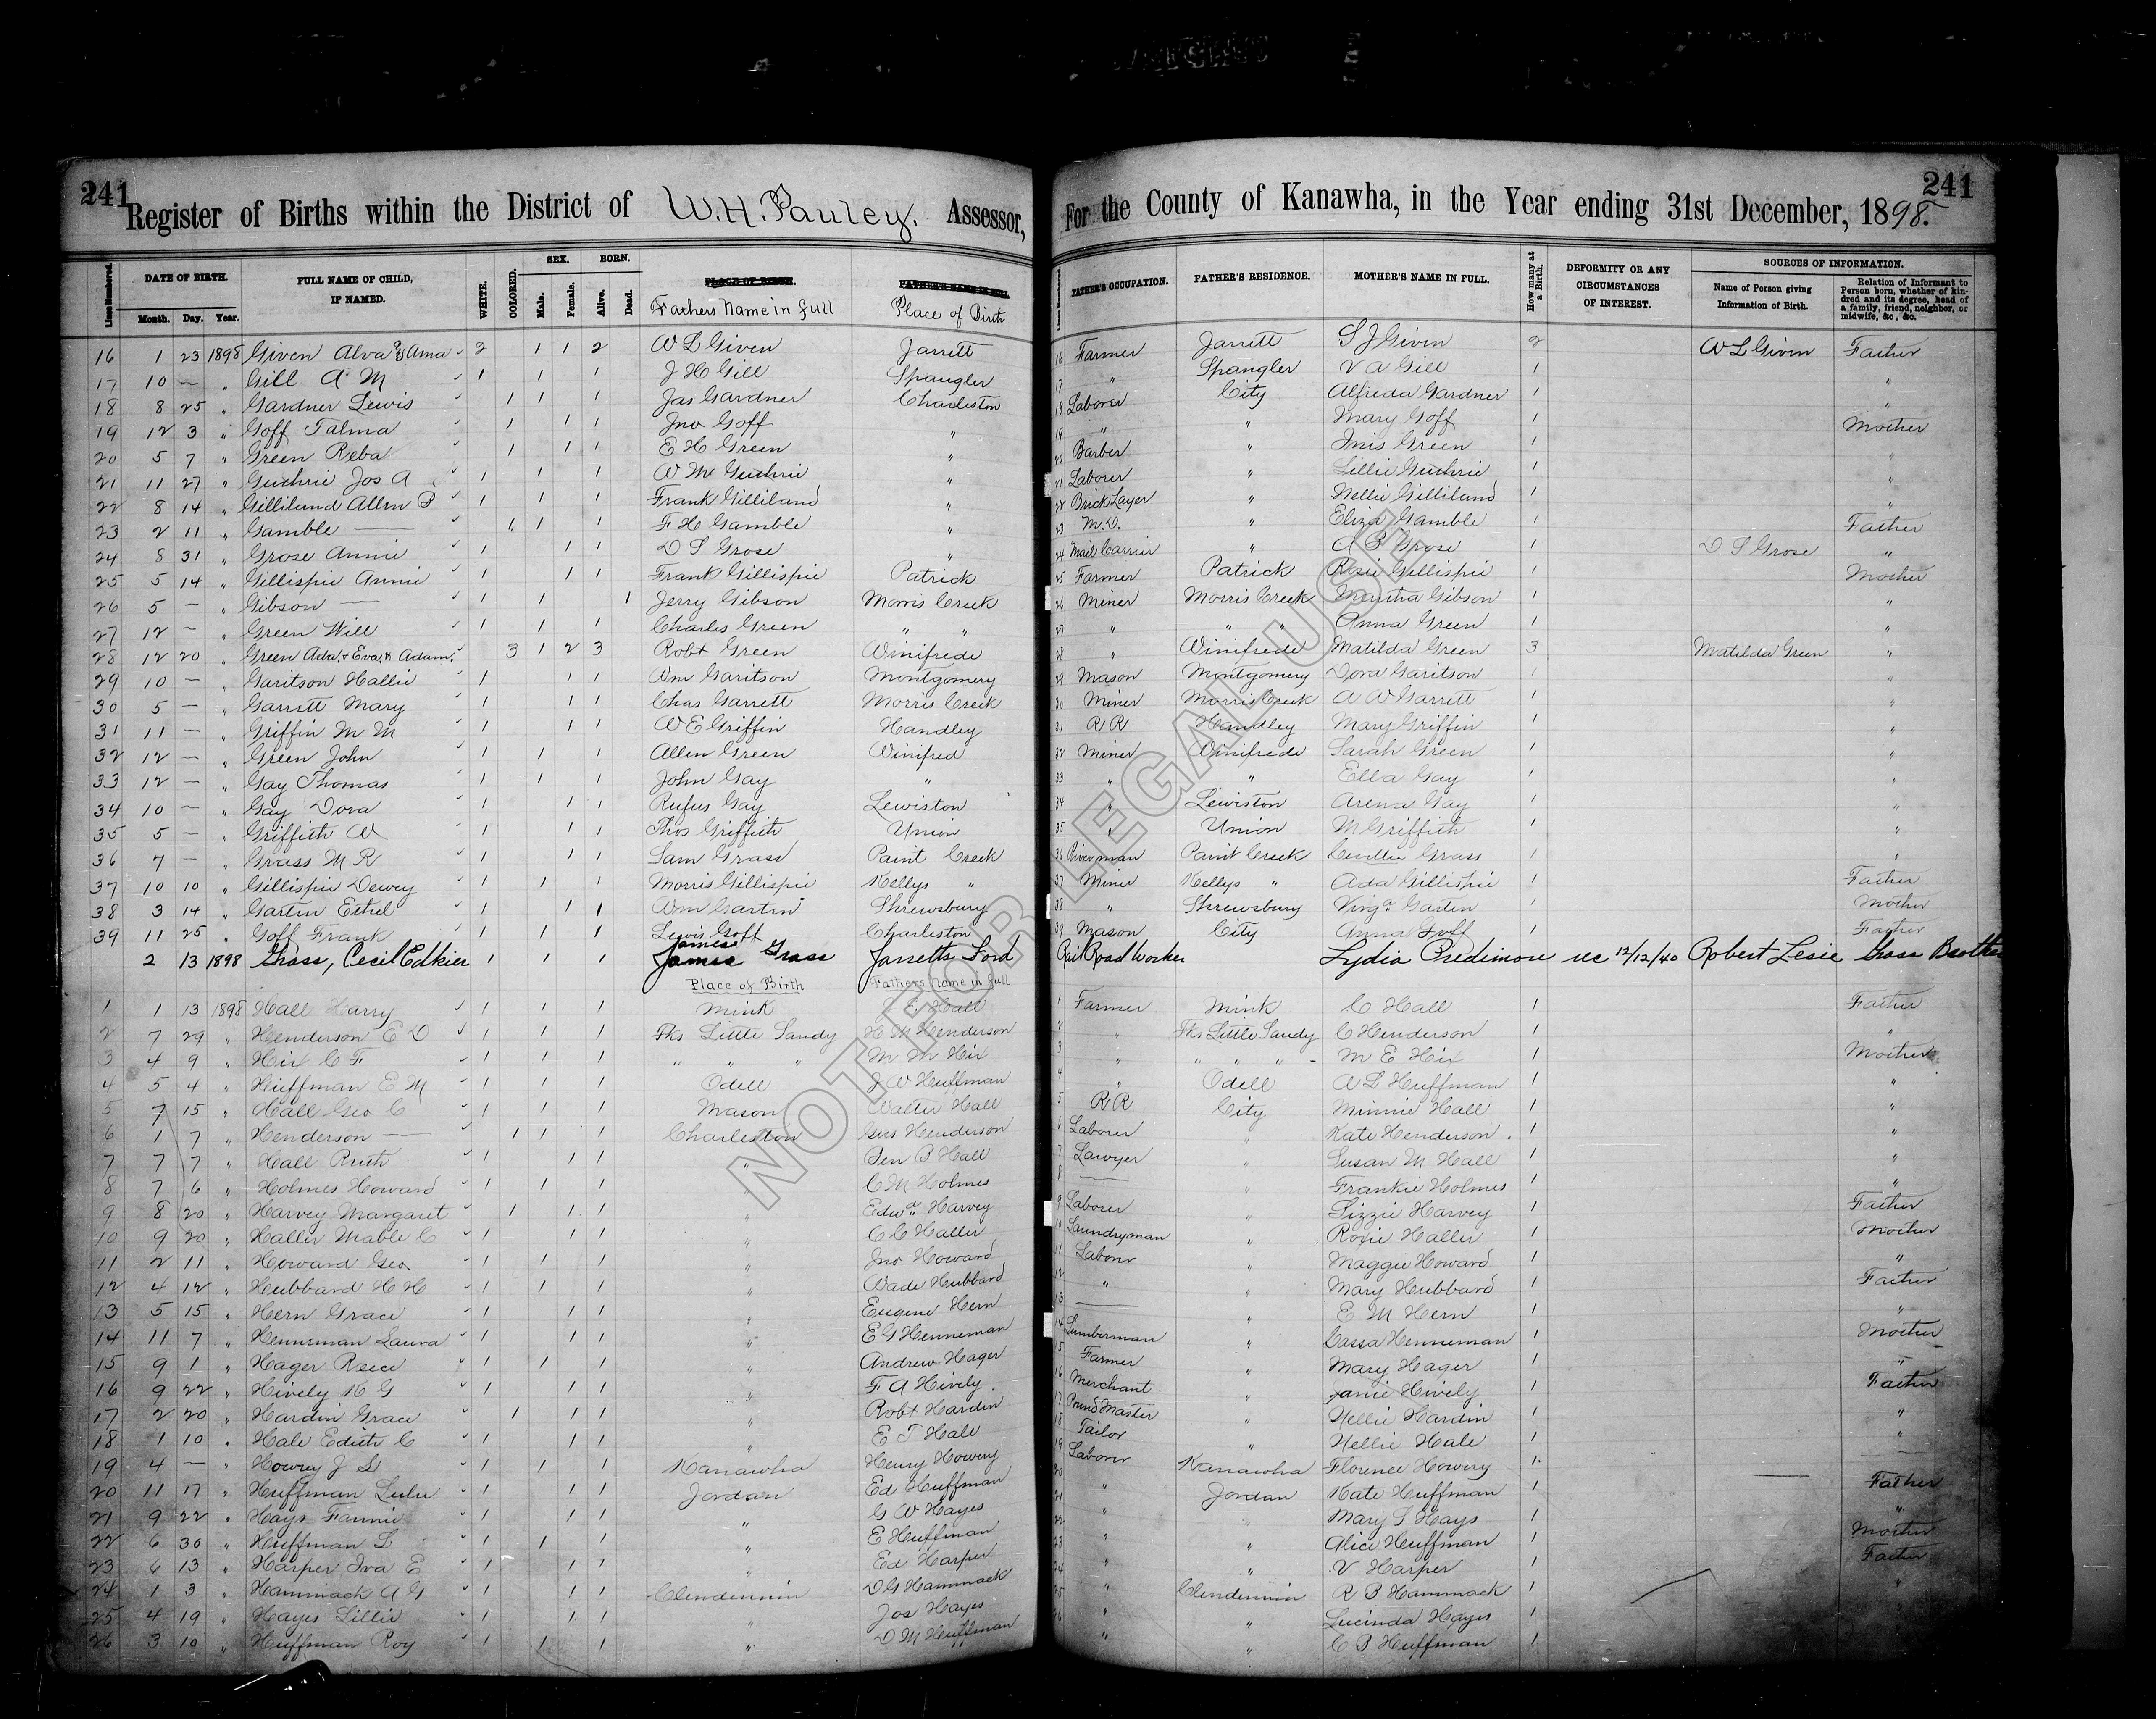 241
Register of Births within the District of W.H. Pauley. Assessor,
For the County of Kanawha, in the Year ending 31st December, 1898.
241
Lines Numbered. DATE OF BIRTH. Month. Day. Year. FULL NAME OF CHILD, IF NAMED. WHITE. COLORED. SEX. Male. Female. BORN. Alive. Dead. PLACE OF BIRTH. Fathers Name in full FATHER'S NAME IN FULL. Place of Birth
Lines Numbered. FATHER'S OCCUPATION. FATHER'S RESIDENCE. MOTHER'S NAME IN FULL. How many at a Birth. DEFORMITY OR ANY CIRCUMSTANCES OF INTEREST. SOURCES OF INFORMATION. Name of Person giving Information of Birth. Relation of Informant to Person born, whether of kindred and its degree, head of a family, friend, neighbor, or midwife, &c., &c.
16 1 23 1898 Given Alva & Ama 2 1 1 2 W L Given Jarrett 16 Farmer Jarrett S J Given 2 W L Given Father
17 10 — " Gill A M 1 1 1 J H Gill Spangler 17 " Spangler V A Gill 1 "
18 8 25 " Gardner Lewis 1 1 1 Jas Gardner Charleston 18 Laborer City Alfreda Gardner 1 "
19 12 3 " Goff Talma 1 1 1 Jno Goff " 19 " " Mary Goff 1 Mother
20 5 7 " Green Reba 1 1 1 E H Green " 20 Barber " Inis Green 1 "
21 11 27 " Guthrie Jos A 1 1 1 W M Guthrie " 21 Laborer " Lillie Guthrie 1 "
22 8 14 " Gilliland Allen P 1 1 1 Frank Gilliland " 22 Brick Layer " Nellie Gilliland 1 "
23 2 11 " Gamble — 1 1 1 F H Gamble " 23 M.D. " Eliza Gamble 1 Father
24 8 31 " Grose Annie 1 1 1 D S Grose " 24 Mail Carrier " A B Grose 1 D S Grose "
25 5 14 " Gillispie Annie 1 1 1 Frank Gillispie Patrick 25 Farmer Patrick Rosie Gillispie 1 Mother
26 5 — " Gibson — 1 1 1 Jerry Gibson Morris Creek 26 Miner Morris Creek Martha Gibson 1 "
27 12 — " Green Will 1 1 1 Charles Green " " 27 " " " Anna Green 1 "
28 12 20 " Green Ada. & Eva. & Adam. 3 1 2 3 Robt Green Winifrede 28 " Winifrede Matilda Green 3 Matilda Green "
29 10 — " Garitson Hallie 1 1 1 Wm Garitson Montgomery 29 Mason Montgomery Dora Garitson 1 "
30 5 — " Garrett Mary 1 1 1 Chas Garrett Morris Creek 30 Miner Morris Creek A W Garrett 1 "
31 11 — " Griffin M M 1 1 1 W E Griffin Handley 31 R R Handley Mary Griffin 1 "
32 12 — " Green John 1 1 1 Allen Green Winifred 32 Miner Winifrede Sarah Green 1 "
33 12 — " Gay Thomas 1 1 1 John Gay " 33 " " Ella Gay 1 "
34 10 — " Gay Dora 1 1 1 Rufus Gay Lewiston 34 " Lewiston Arena Gay 1 "
35 5 — " Griffith W 1 1 1 Thos Griffith Union 35 " Union M Griffith 1 "
36 7 — " Grass M R 1 1 1 Sam Grass Paint Creek 36 Riverman Paint Creek Grass 1 "
37 10 10 " Gillispie Dewey 1 1 1 Morris Gillispie Kellys " 37 Miner Kellys " Ada Gillispie 1 Father
38 3 14 " Gartin Ethel 1 1 1 Wm Gartin Shrewsbury 38 " Shrewsbury Virga Gartin 1 Mother
39 11 25 " Goff Frank 1 1 1 Lewis Goff Charleston 39 Mason City Anna Goff 1 Father
2 13 1898 Grass, Cecil Edkier 1 1 1 James James Grass Jarretts Ford Rail Road Worker Lydia Predimore rec 12/12/40 Robert Lesie Grass Brother
Place of Birth Fathers Name in full
1 1 13 1898 Hall Harry 1 1 1 Mink E Hall 1 Farmer Mink C Hall 1 Father
2 7 29 " Henderson E D 1 1 1 Fks Little Sandy H M Henderson 2 " Fks Little Sandy C Henderson 1 "
3 4 9 " Hix C F 1 1 1 " " " M M Hix 3 " " " " M E Hix 1 Mother
4 5 4 " Huffman E M 1 1 1 Odell J W Huffman 4 " Odell A L Huffman 1 "
5 7 15 " Hall Geo C 1 1 1 Mason Walter Hall 5 R R City Minnie Hall 1 "
6 1 7 " Henderson — 1 1 1 Charleston Gus Henderson 6 Laborer " Kate Henderson 1 "
7 7 7 " Hall Ruth 1 1 1 " Ben B Hall 7 Lawyer " Susan M Hall 1 "
8 7 6 " Holmes Howard 1 1 1 " C M Holmes 8 — " Frankie Holmes 1 "
9 8 20 " Harvey Margaret 1 1 1 " Edwd Harvey 9 Laborer " Lizzie Harvey 1 Father
10 9 20 " Haller Mable C 1 1 1 " C C Haller 10 Laundryman " Roxie Haller 1 Mother
11 2 11 " Howard Geo 1 1 1 " Jno Howard 11 Laborer " Maggie Howard 1 "
12 4 12 " Hubbard H H 1 1 1 " Wade Hubbard 12 " " Mary Hubbard 1 Father
13 5 15 " Hern Grace 1 1 1 " Eugene Hern 13 — " E M Hern 1 "
14 11 7 " Henneman Laura 1 1 1 " E G Henneman 4 Lumberman " Cassa Henneman 1 Mother
15 9 1 " Hager Reece 1 1 1 " Andrew Hager 5 Farmer " Mary Hager 1 "
16 9 22 " Hively K G 1 1 1 " F A Hively 16 Merchant " Janie Hively 1 Father
17 2 20 " Hardin Grace 1 1 1 " Robt Hardin 17 Pound Master " Nellie Hardin 1 "
18 1 10 " Hale Edith C 1 1 1 " E T Hale 18 Tailor " Nellie Hale 1 "
19 4 — " Howery J L 1 1 1 Kanawha Henry Howery 19 Laborer Kanawha Florence Howery 1 —
20 11 17 " Huffman Lulu 1 1 1 Jordan Ed Huffman 20 " Jordan Kate Huffman 1 Father
21 9 22 " Hays Fannie 1 1 1 " G W Hayes 21 " Mary S Hays 1 "
22 6 30 " Huffman L 1 1 1 " E Huffman 22 " " Alice Huffman 1 Mother
23 6 13 " Harper Iva E 1 1 1 " Ed Harper 23 " " V Harper 1 Father
24 1 3 " Hammack A G 1 1 1 Clendennin D G Hammack 24 " Clendennin R B Hammack 1 "
25 4 19 " Hayes Lillie 1 1 1 " Jos Hayes 25 " " Lucinda Hayes 1 "
26 3 10 " Huffman Roy 1 1 1 " D M Huffman 26 " " C B Huffman 1
NOT FOR LEGAL USE